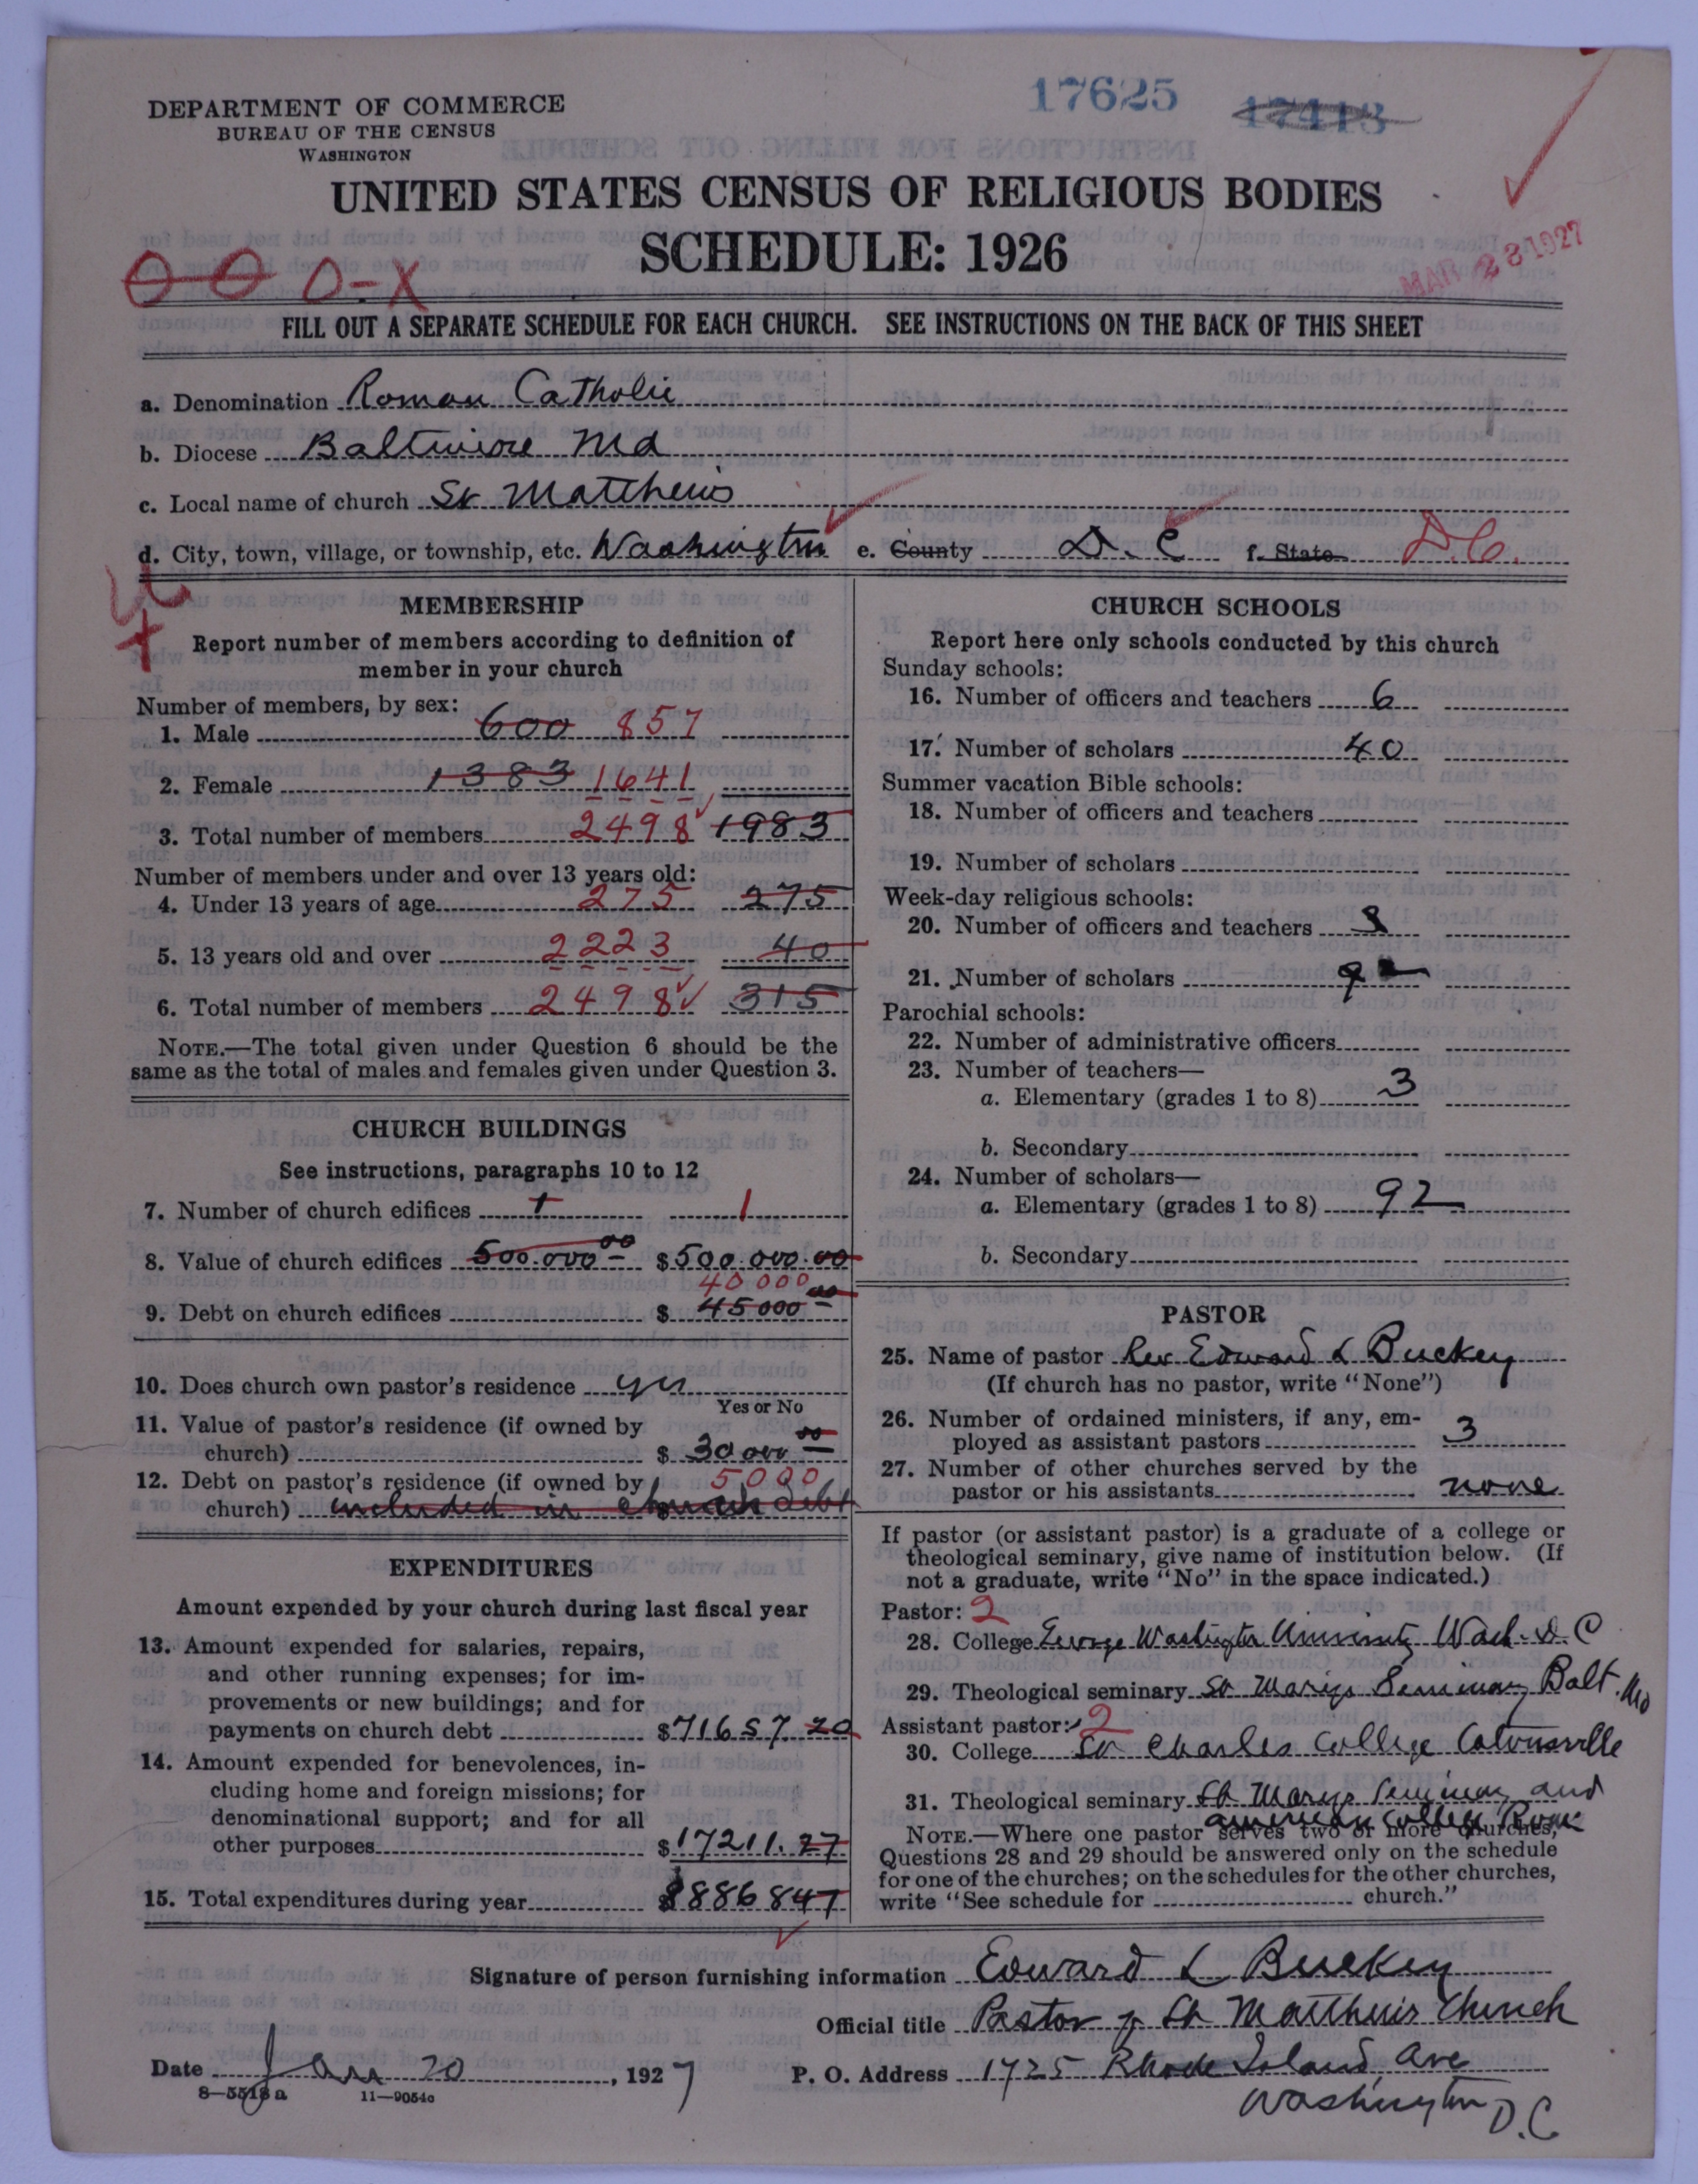 17625 17413
DEPARTMENT OF COMMERCE
BUREAU OF THE CENSUS
WASHINGTON
UNITED STATES CENSUS OF RELIGIOUS BODIES
SCHEDULE: 1926
MAR 28 1927
O-X
FILL OUT A SEPARATE SCHEDULE FOR EACH CHURCH. SEE INSTRUCTIONS ON THE BACK OF THIS SHEET
a. Denomination Roman Catholic
b. Diocese Baltimore Md
c. Local name of church St Matthews
d. City, town, village, or township, etc. Washington e. County D. C f. State D.C.
MEMBERSHIP
Report number of members according to definition of
member in your church
Number of members, by sex:
1. Male 600 857
2. Female 1383 1641
3. Total number of members 2498 1983
Number of members under and over 13 years old:
4. Under 13 years of age 275 275
5. 13 years old and over 2223 40
6. Total number of members 2498 315
NOTE.—The total given under Question 6 should be the
same as the total of males and females given under Question 3.
CHURCH BUILDINGS
See instructions, paragraphs 10 to 12
7. Number of church edifices 1 1
8. Value of church edifices 500.000 00 $500.000.00
40000
9. Debt on church edifices $ 45000 00
10. Does church own pastor's residence yes
Yes or No
11. Value of pastor's residence (if owned by
church) $ 30000 00
12. Debt on pastor's residence (if owned by 5000
church) included in church debt
EXPENDITURES
Amount expended by your church during last fiscal year
13. Amount expended for salaries, repairs,
and other running expenses; for im-
provements or new buildings; and for
payments on church debt $71657.20
14. Amount expended for benevolences, in-
cluding home and foreign missions; for
denominational support; and for all
other purposes $17211.27
15. Total expenditures during year $88868 47
CHURCH SCHOOLS
Report here only schools conducted by this church
Sunday schools:
16. Number of officers and teachers 6
17. Number of scholars 40
Summer vacation Bible schools:
18. Number of officers and teachers
19. Number of scholars
Week-day religious schools:
20. Number of officers and teachers 3
21. Number of scholars 92
Parochial schools:
22. Number of administrative officers
23. Number of teachers—
a. Elementary (grades 1 to 8) 3
b. Secondary
24. Number of scholars—
a. Elementary (grades 1 to 8) 92
b. Secondary
PASTOR
25. Name of pastor Rev Edward L Buckey
(If church has no pastor, write "None")
26. Number of ordained ministers, if any, em-
ployed as assistant pastors 3
27. Number of other churches served by the
pastor or his assistants none
If pastor (or assistant pastor) is a graduate of a college or
theological seminary, give name of institution below. (If
not a graduate, write "No" in the space indicated.)
Pastor: 2
28. College George Washington University Wash. D.C
29. Theological seminary St Marys Seminary Balt. Md
Assistant pastor: 2
30. College St Charles College Catonsville
31. Theological seminary St Marys Seminary and
American College Rome
NOTE.—Where one pastor serves two or more churches,
Questions 28 and 29 should be answered only on the schedule
for one of the churches; on the schedules for the other churches,
write "See schedule for church."
Signature of person furnishing information Edward L Buckey
Official title Pastor of St Matthews Church
Date Jan 20, 1927 P. O. Address 1725 Rhode Island Ave
Washington D.C
8-5518a 11-9054a